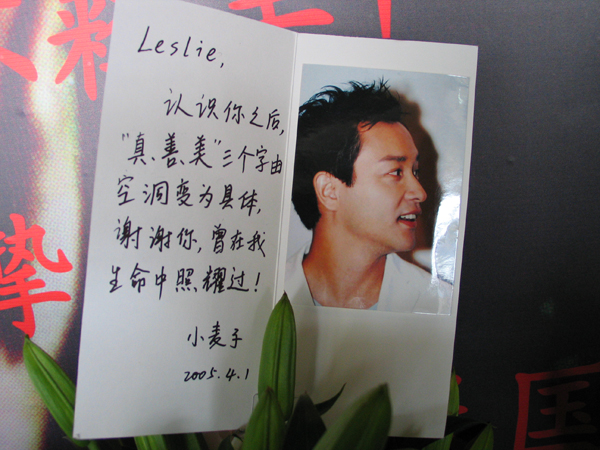 Leslie,
认识你之后,
"真、善、美"三个字由
空洞变为具体,
谢谢你,曾在我
生命中照耀过!
小麦子
2005.4.1
挚
国